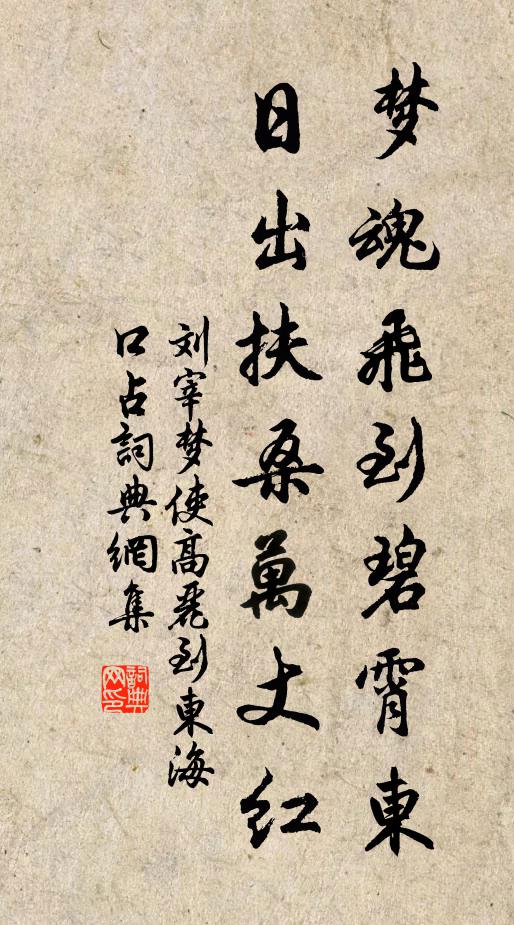 梦魂飛到碧霄東
日出扶桑萬丈红
刘宰梦使高丽到東海
口占詞典網集
詞典网印